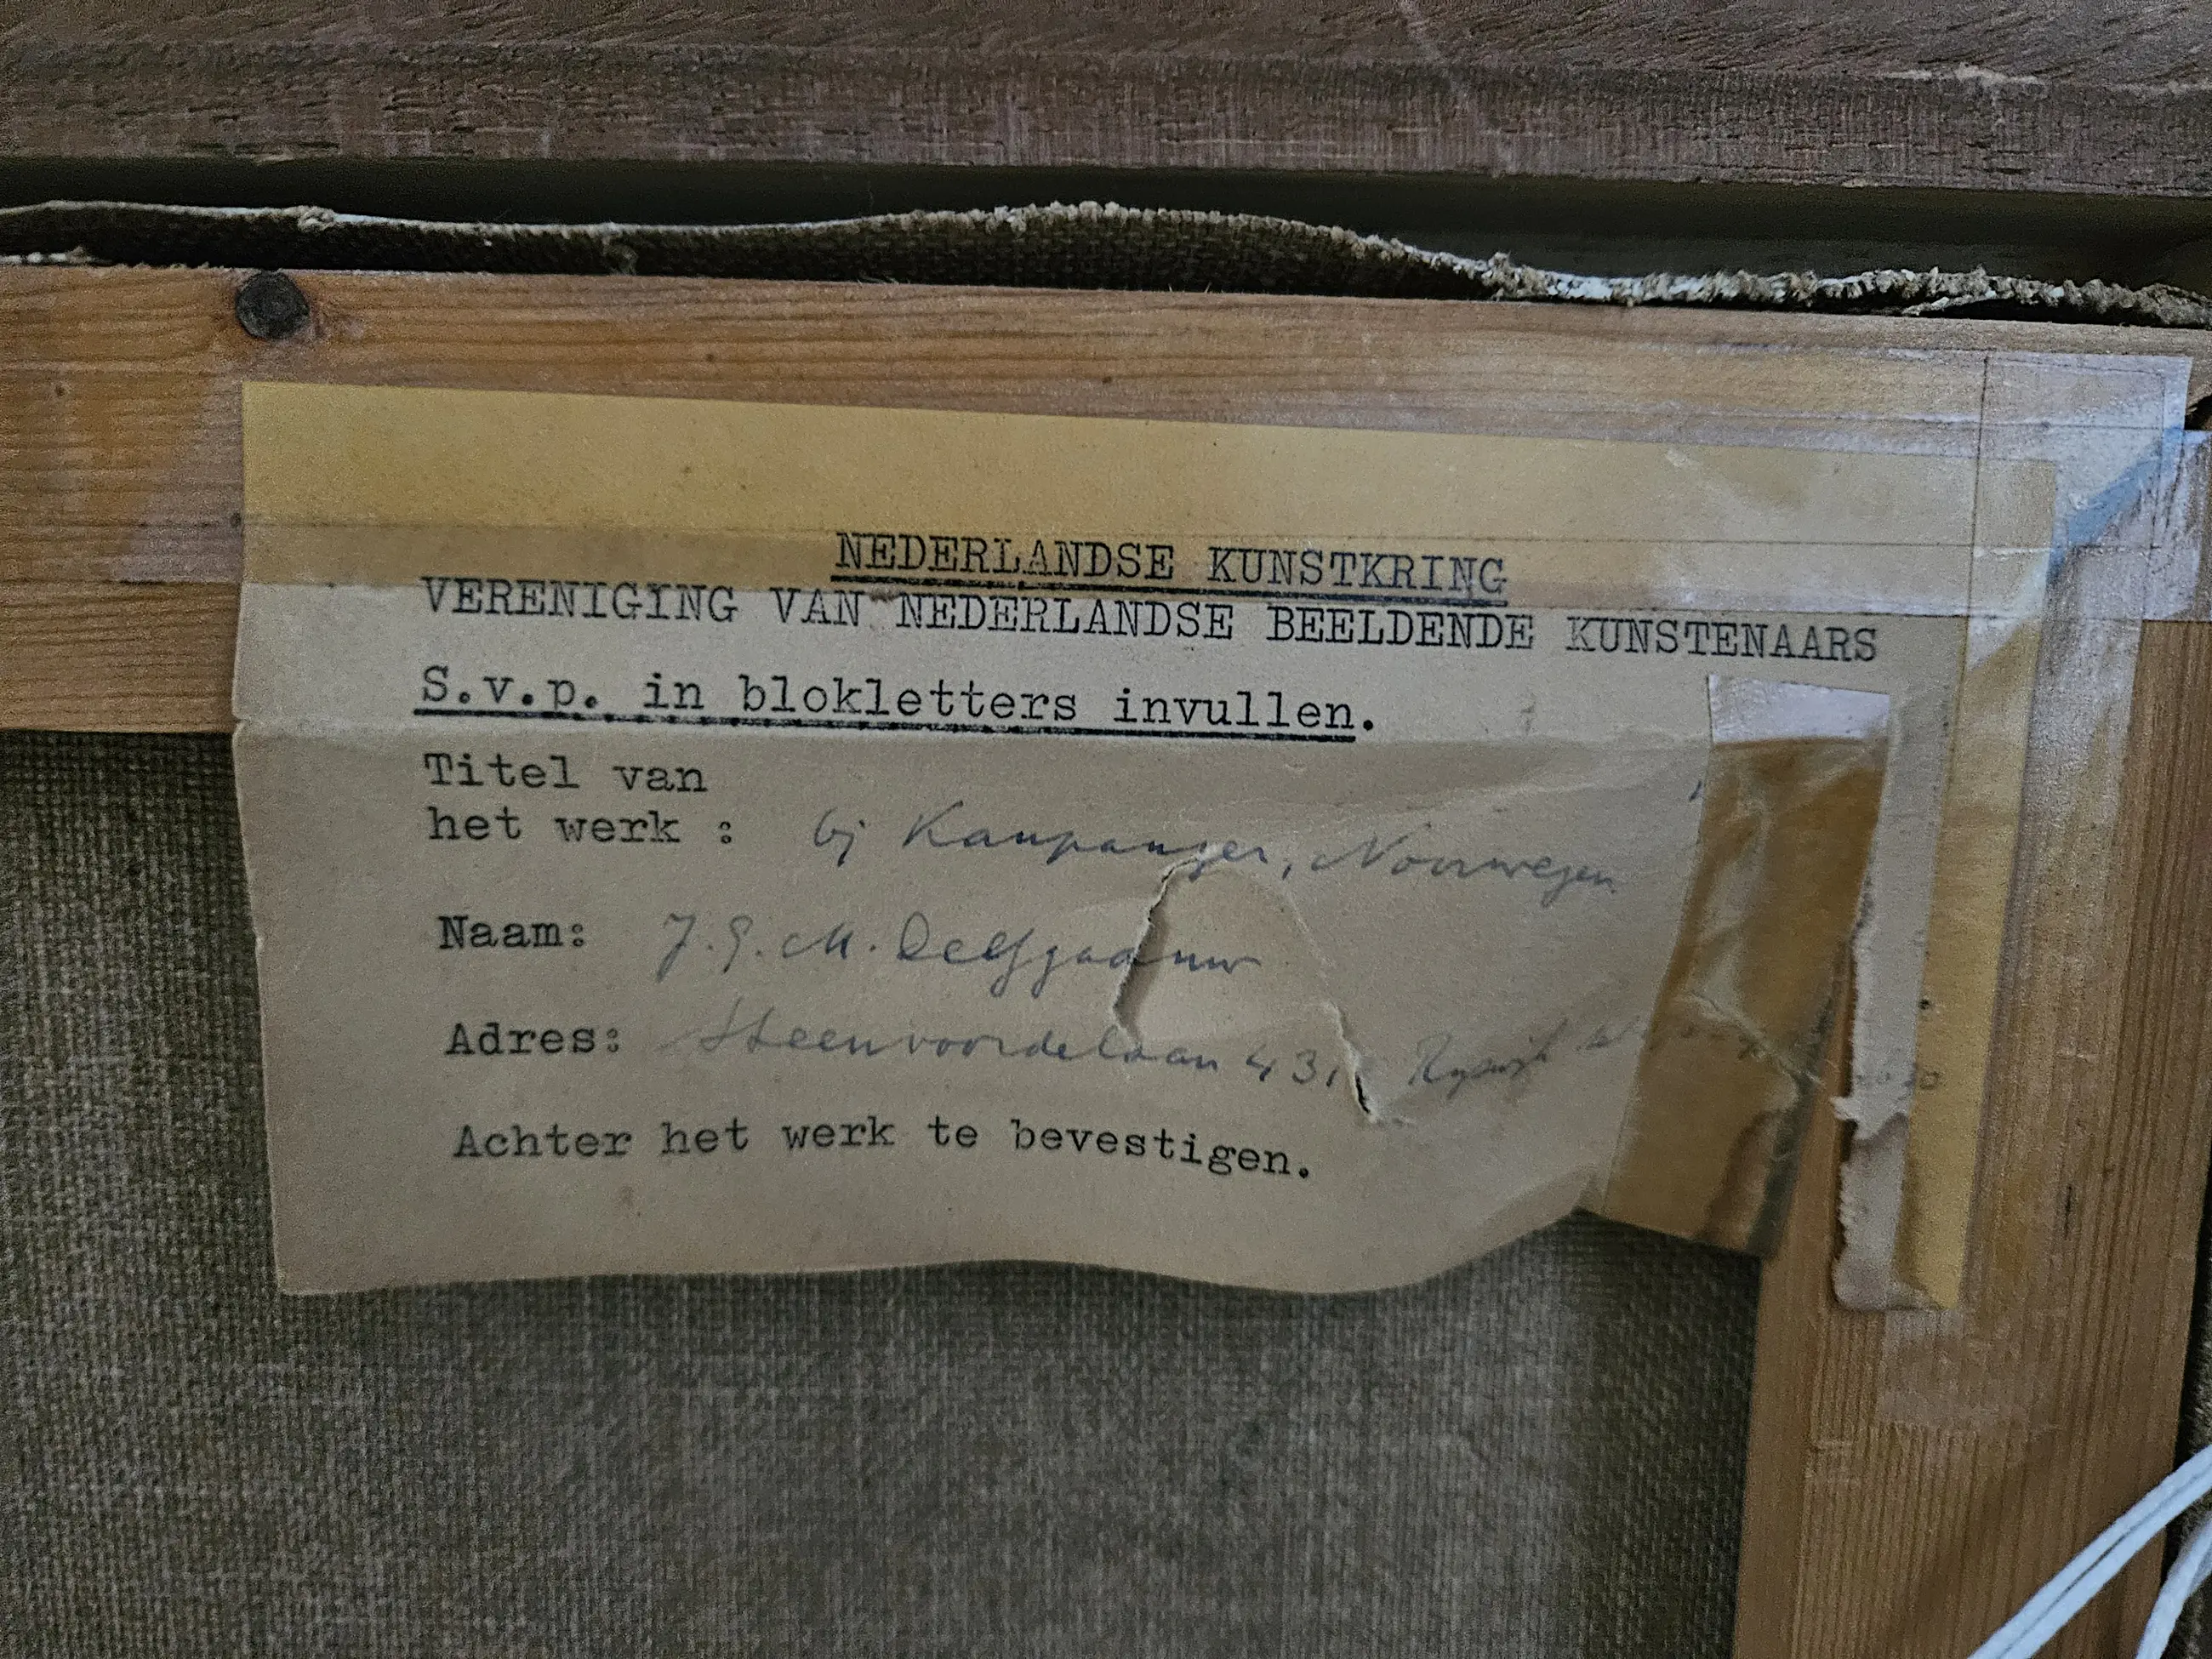 NEDERLANDSE KUNSTKRING
VERENIGING VAN NEDERLANDSE BEELDENDE KUNSTENAARS
S.v.p. in blokletters invullen.
Titel van
het werk : bij Kaupanger, Noorwegen
Naam: J. G. M. Delfgaauw
Adres: Steenvoordelaan 431, Rijswijk
Achter het werk te bevestigen.